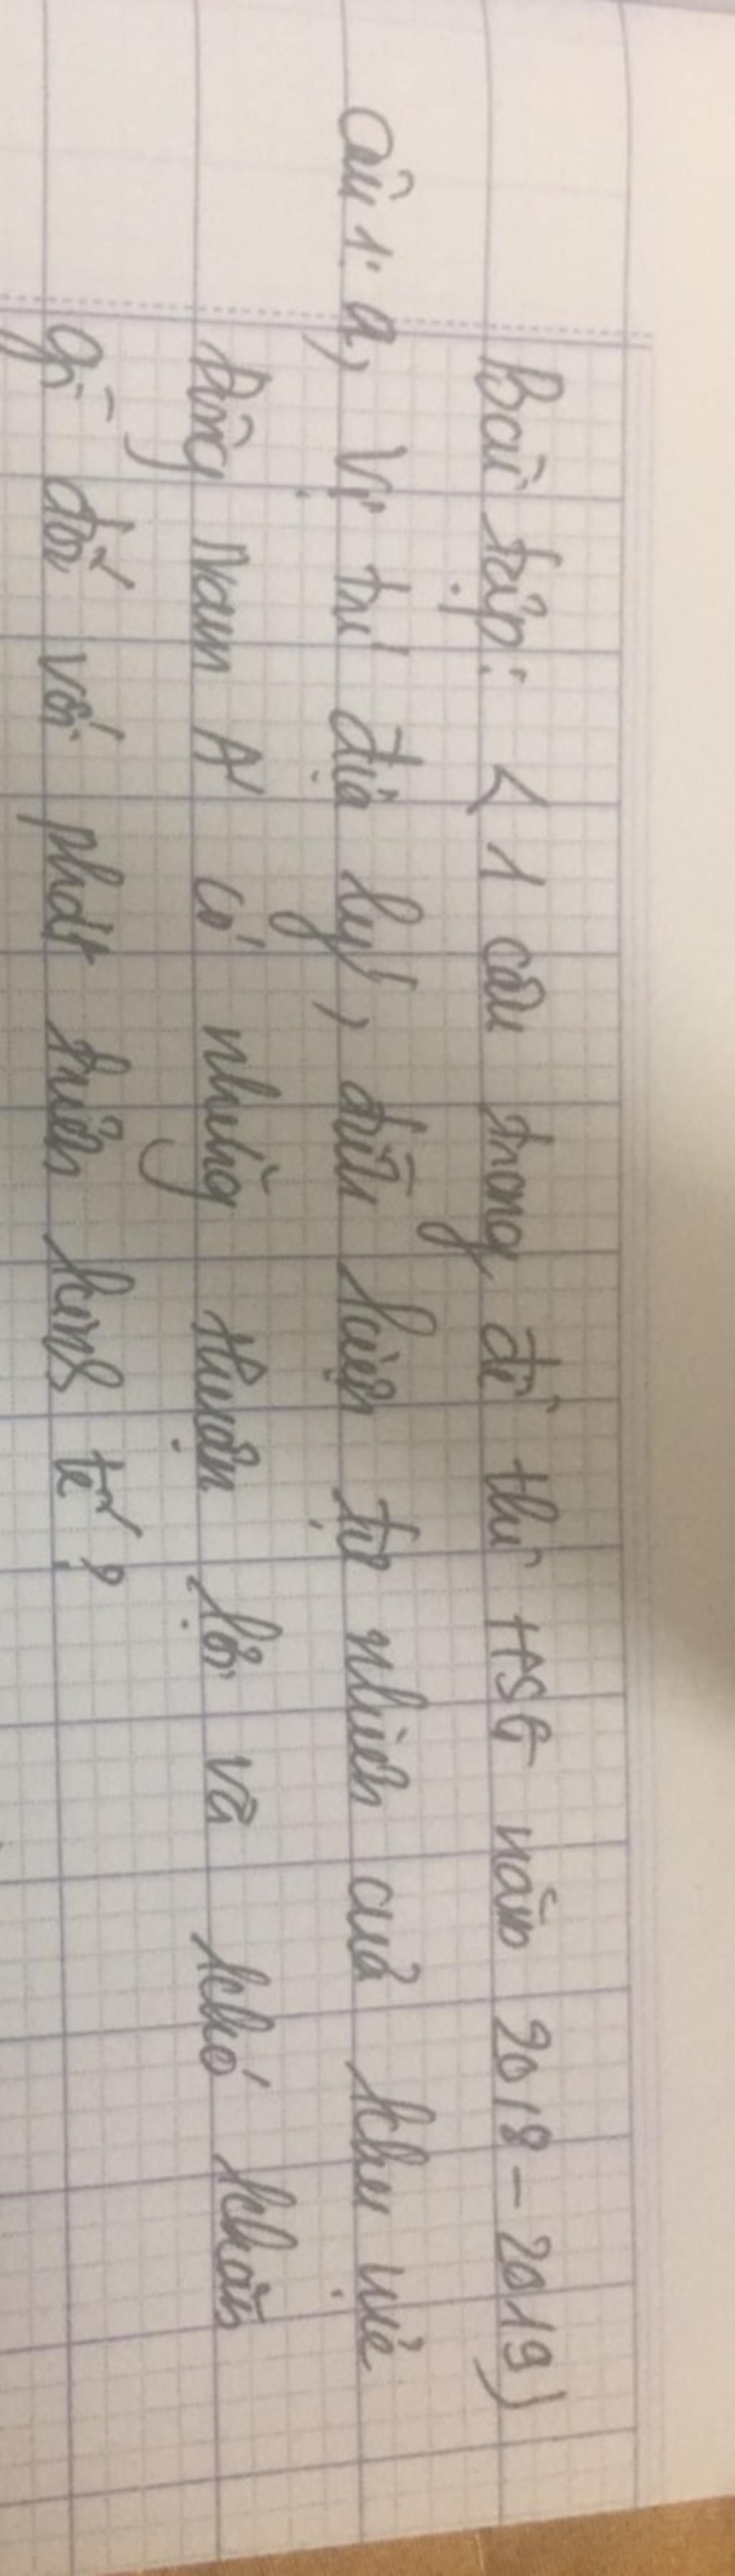 Bài tập: < 1 câu trong đề thi HSG năm 2018 - 2019)
Câu 1: a, Vị trí địa lý, điều kiện tự nhiên của khu vực
Đông Nam Á có những thuận lợi và khó khăn
gì đối với phát triển kinh tế?